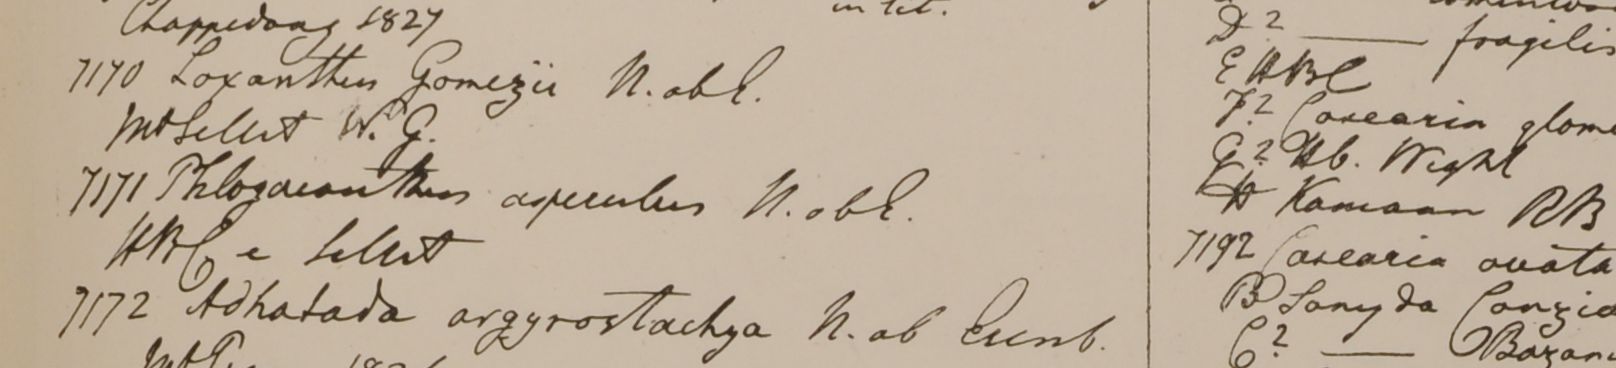 Chappedong 1827
in lit.
7170 Loxanthus Gomezii N. ab E.
Mt Sillet W. G.
7171 Phlogacanthus asperulus N. ab E.
HBC e Sillet
7172 Adhatada argyrostachya N. ab Esenb.
D? —— fragilis
E HBC
F? Casearia glome
G? Hb. Wight
H Kamaon RB
7192 Casearia ovata
B Samyda Conzia
C? ——